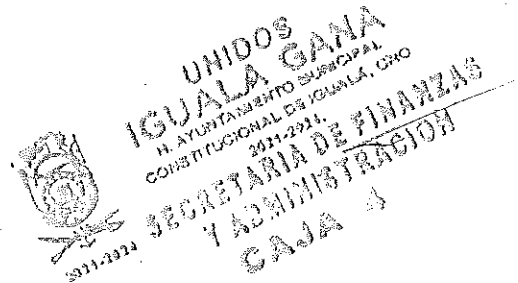 UNIDOS
IGUALA GANA
H. AYUNTAMIENTO MUNICIPAL
CONSTITUCIONAL DE IGUALA, GRO
2021-2024.
SECRETARIA DE FINANZAS
Y ADMINISTRACION
CAJA
2021-2024